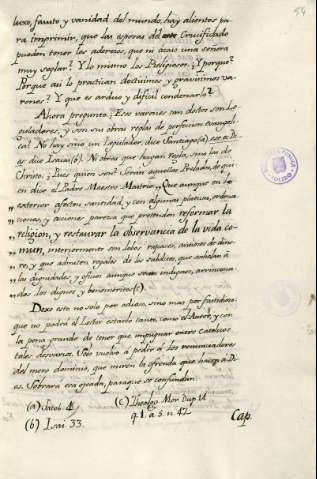 54
luxo, fausto y vanidad del mundo, hay alientos pa-
ra imprimir, que las esposas de este Crucificado
pueden tener los aderezos, que ni acaso una señora
muy seglar? Y lo mismo los Religiosos? Y porque?
Porque asi lo practican doctisimos y gravisimos va-
rones? Y que es arduo y dificil condenarlo?
Ahora pregunto: Esos varones tan doctos son Le-
gisladores, y son sus obras reglas de perfeccion evangeli-
ca? No hay sino un Legislador, dice Santiago (a) ese es Di-
os dice Isaias (b). Ni obras que hagan regla, sino las de
Christo; Pues quien son? Seran aquellos Prelados, de qui-
en dice el Padre Maestro: Que aunque en lo
„ exterior afecten santidad, y con algunas platicas, ordena-
„ ciones, y acciones parezca que pretenden reformar la
„ religion, y restaurar la observancia de la vida co-
„ mun, interiormente son lobos rapaces, ansiosos de dine-
„ ro, y que admiten regalos de los subditos, que anhelan á
„ las dignidades, y oficios aunque sean indignos, arrincona-
„ dos los dignos y benemeritos (c).
Dexo esto no solo por odioso, sino mas por fastidioso
que no podrá el Lector estarlo tanto, como el Autor, y con
la pena grande de tener que impugnar entre Catolicos
tales desvarios. Solo vuelvo a pedir á los renunciadores
del mero dominio, que miren la ofrenda que hacen á Di-
os. Sobrará esa ojeada, para que se confundan.
(a) Jacob. 4. (c) Theolog. Mor. Disp. 14
(b) Isai. 33. q. 1. a. 5. n. 47
Cap.